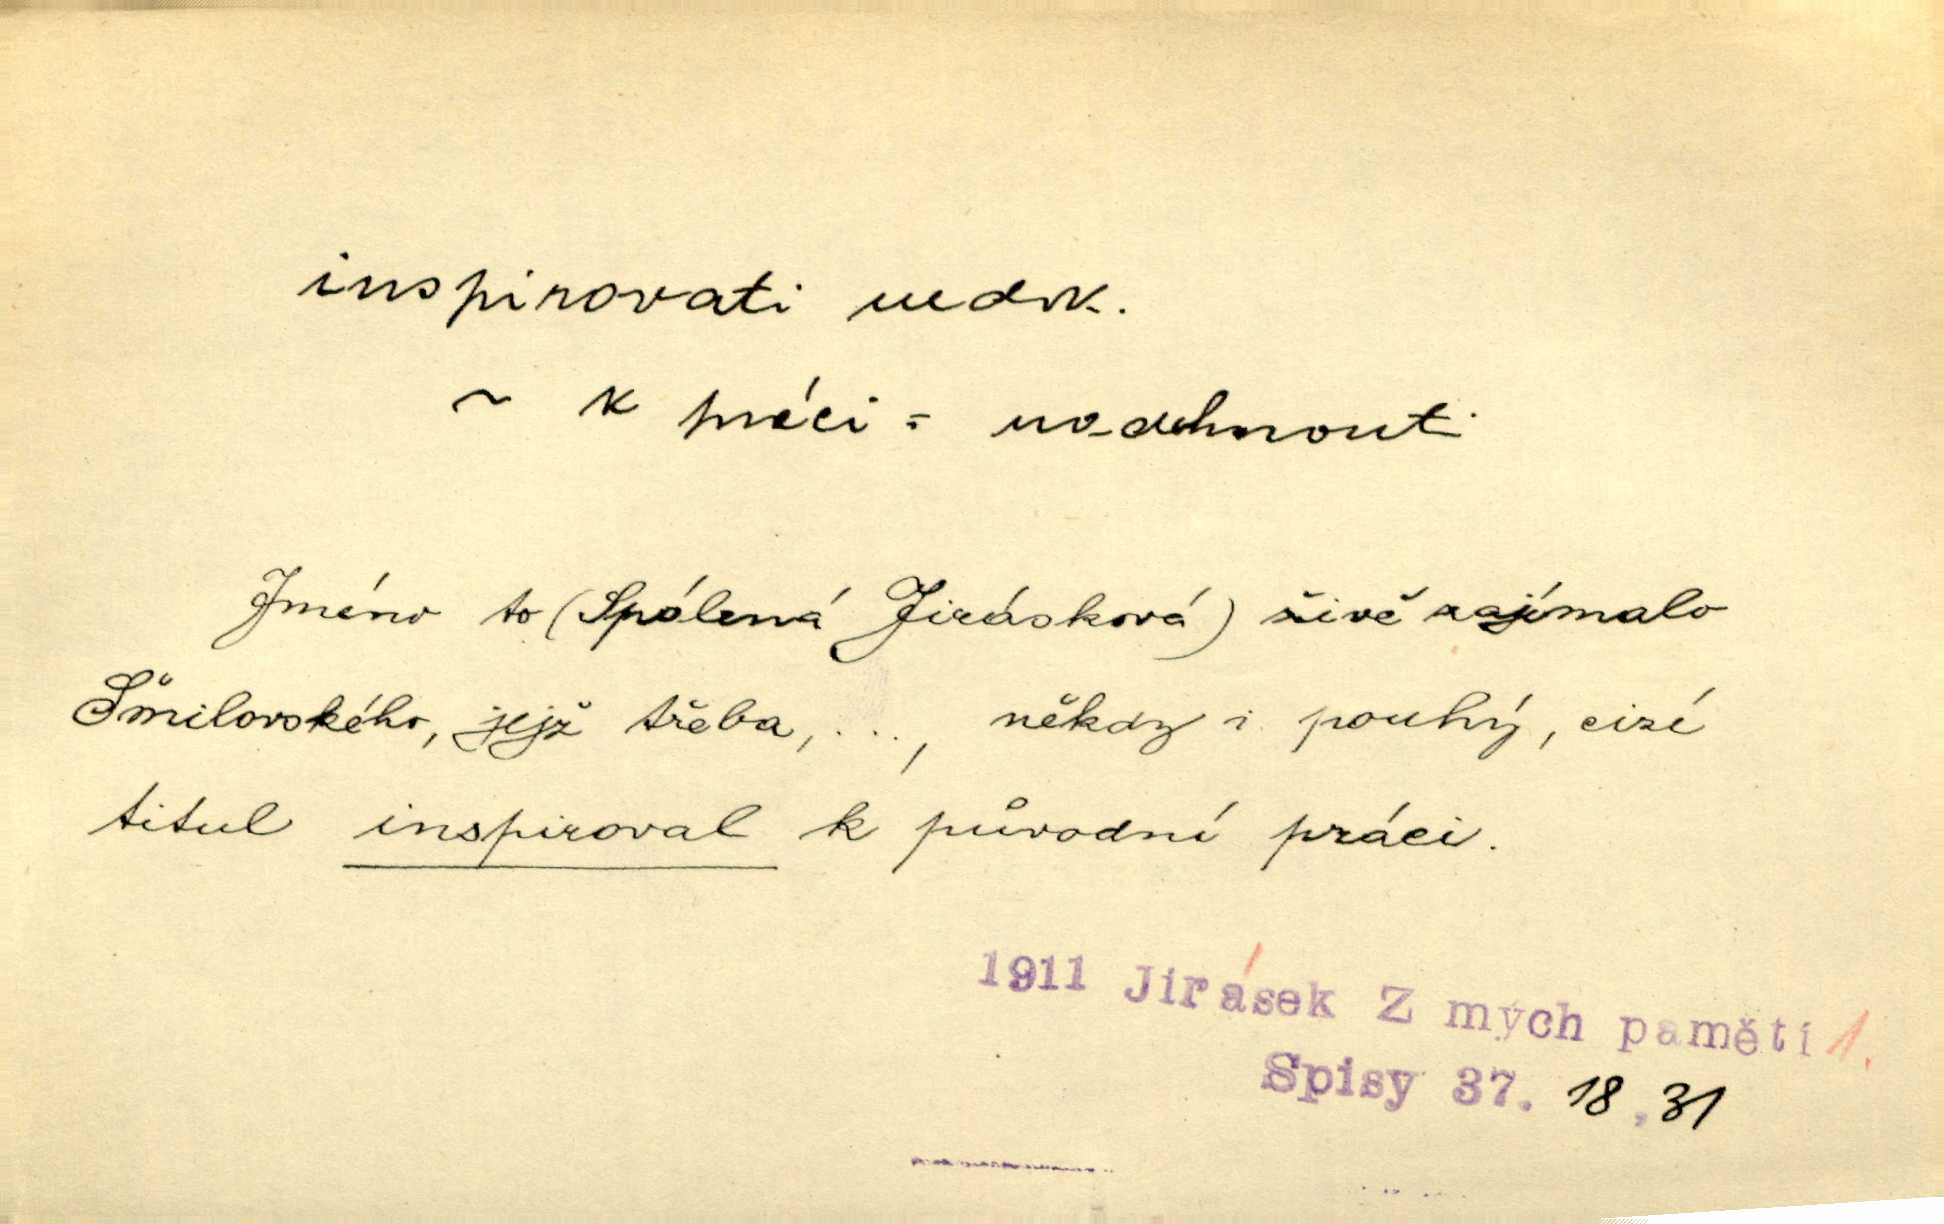 inspirovati nedok.
~ k práci = nadchnouti
Jméno to (Spálená Jirásková) živě zajímalo
Šmilovského, jejž třeba, ..., někdy i pouhý, cizí
titul inspiroval k původní práci.
1911 Jirásek Z mých pamětí 1.
Spisy 37. 18, 31